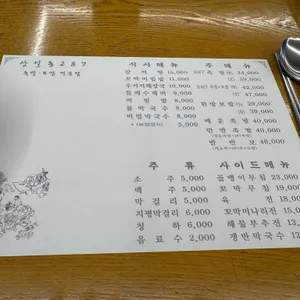 산 일 동 2 8 7
족발·보쌈 전문점
식 사 메 뉴
장 어 탕 15,000
꼬막비빔밥 12,000
우거지해장국 10,000
들깨수제비 9,000
비 빔 밥 8,000
물 막 국 수 8,000
비빔막국수 8,000
3,000
주 메 뉴
287 족 발 34,000
39,000
42,000
47,000
29,000
39,000
매 운 족 발 40,000
반 반 족 발 40,000
반 반 보 48,000
주 류
소 주 5,000
맥 주 5,000
막 걸 리 5,000
지평막걸리 6,000
청 하 6,000
음 료 수 2,000
사 이 드 메 뉴
골뱅이무침 23,000
꼬 막 무 침 19,000
육 전 18,000
꼬막미나리전 15,0
해 물 부 추 전 13,
쟁반막국수 12